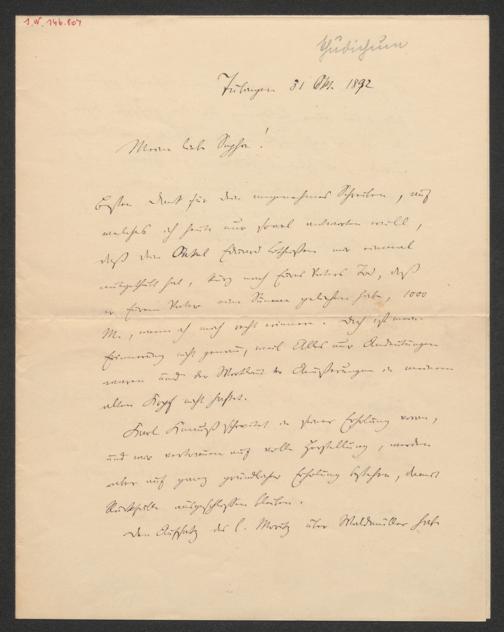 I.N. 146.807
Thudichum
Tübingen 31 Okt. 1892
Meine liebe Sophie!
Besten Dank für Dein angenehmes Schreiben, auf
welches ich heute nur soviel antworten will,
daß der Onkel Eduard mir einmal
mitgetheilt hat, kurz nach Eures Vaters Tod, daß
er Eurem Vater eine Summe geliehen habe, 1000
M., wenn ich mich recht erinnere. Doch ist meine
Erinnerung nicht genau, weil Alles nur Andeutungen
waren und der Wortlaut der Äußerungen in meinem
alten Kopf nicht haftet.
Karl schreitet in seiner Erholung voran,
und wir vertrauen auf volle Herstellung, werden
aber auf ganz gründlicher Erholung bestehen, damit
Rückfälle ausgeschlossen bleiben.
Den Aufsatz des l. Moritz über Waldmüller habe